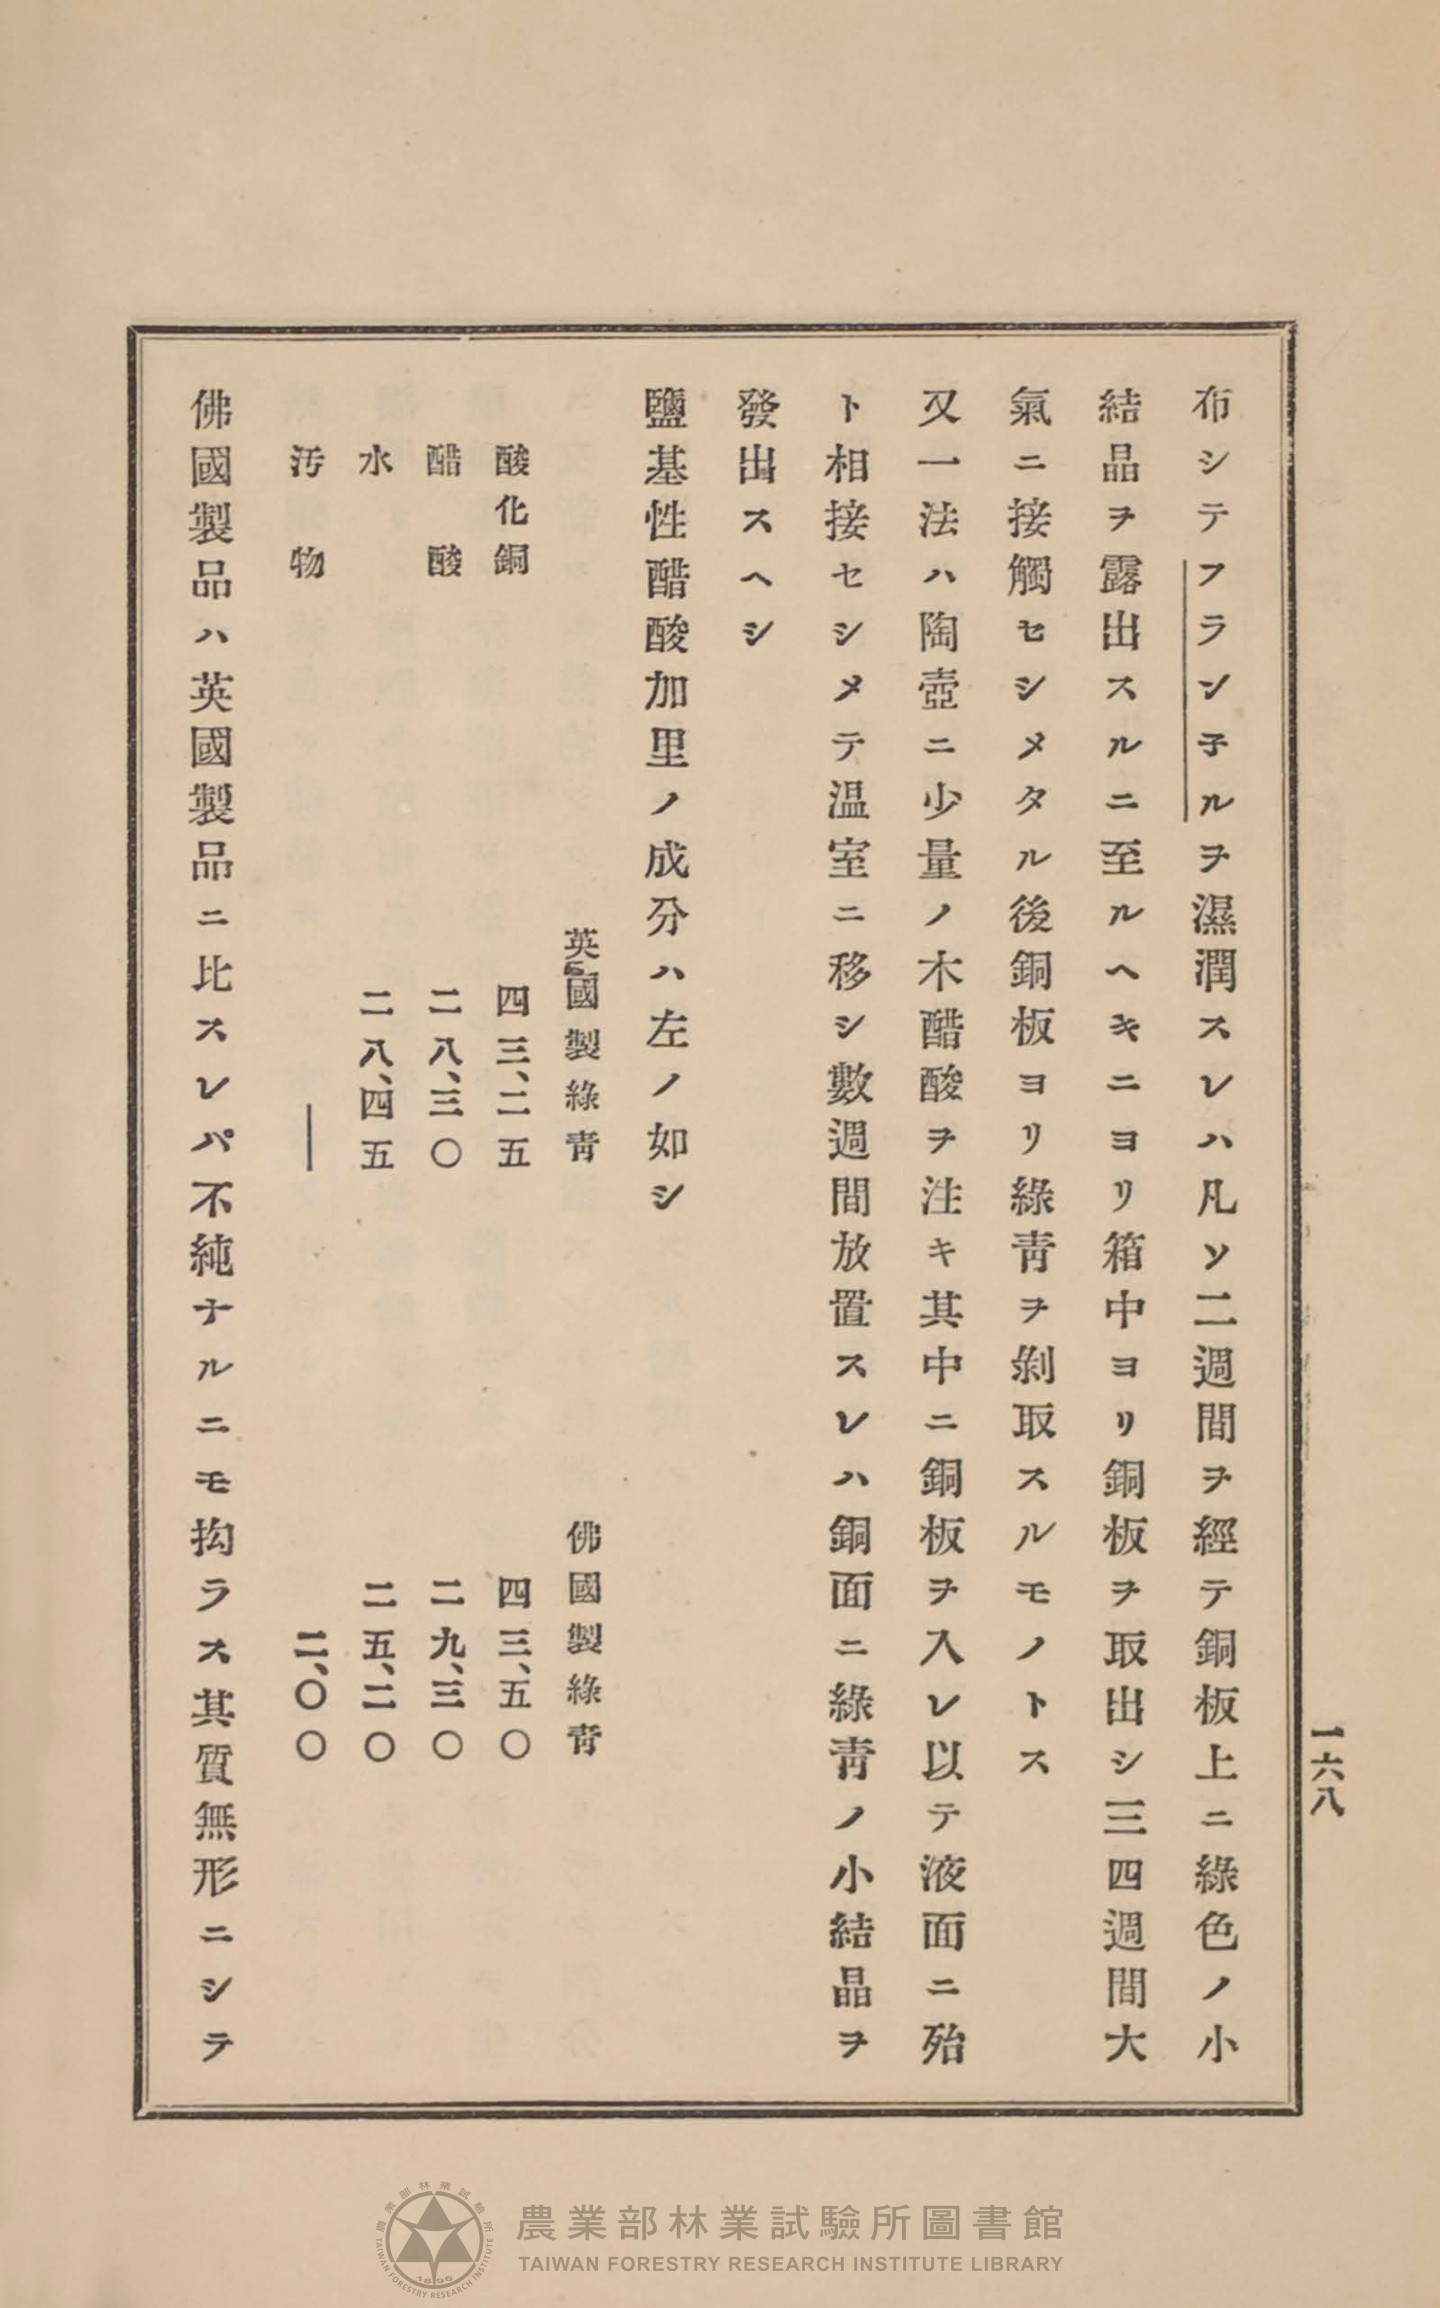 一六八
布シテフラン子ルヲ濕潤スレハ凡ソ二週間ヲ經テ銅板上ニ綠色ノ小
結晶ヲ露出スルニ至ルヘキニヨリ箱中ヨリ銅板ヲ取出シ三四週間大
氣ニ接觸セシメタル後銅板ヨリ綠青ヲ剝取スルモノトス
又一法ハ陶壺ニ少量ノ木醋酸ヲ注キ其中ニ銅板ヲ入レ以テ液面ニ殆
ト相接セシメテ温室ニ移シ數週間放置スレハ銅面ニ綠靑ノ小結晶ヲ
發出スヘシ
鹽基性醋酸加里ノ成分ハ左ノ如シ
英國製綠青 佛國製綠青
酸化銅 四三、二五 四三、五〇
醋酸 二八、三〇 二九、三〇
水 二八、四五 二五、二〇
汚物 ― 二、〇〇
佛國製品ハ英國製品ニ比スレパ不純ナルニモ拘ラス其質無形ニシテ
農業部林業試驗所圖書館
TAIWAN FORESTRY RESEARCH INSTITUTE LIBRARY
農業部林業試驗所
TAIWAN FORESTRY RESEARCH INSTITUTE
1896